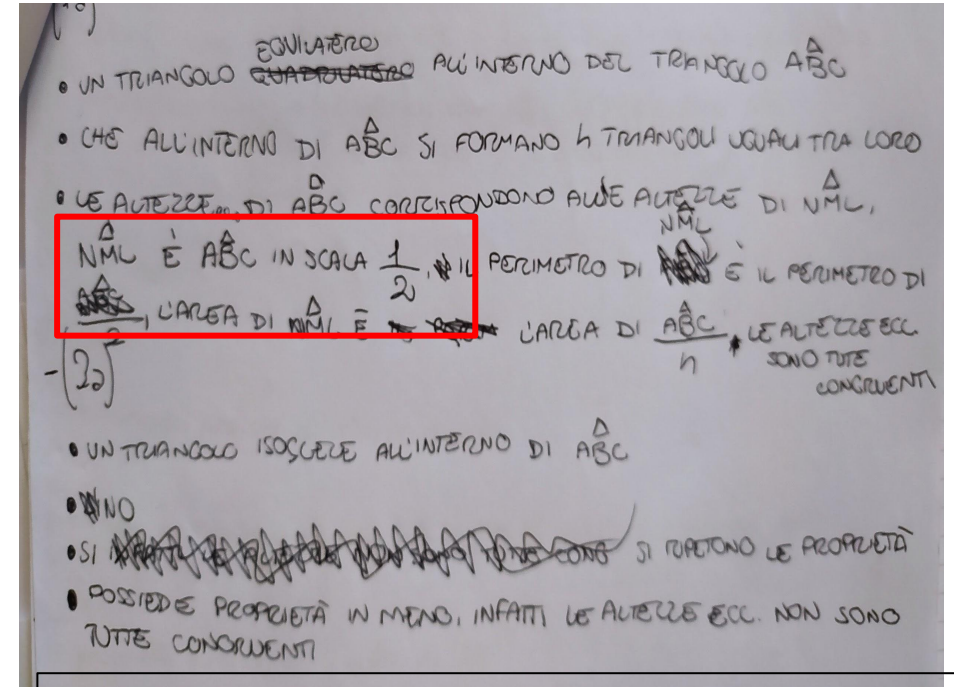 • UN TRIANGOLO EQUILATERO ALL'INTERNO DEL TRIANGOLO ABC
• CHE ALL'INTERNO DI ABC SI FORMANO 4 TRIANGOLI UGUALI TRA LORO
• LE ALTEZZE DI ABC CORRISPONDONO ALLE ALTEZZE DI NML,
NML È ABC IN SCALA 1/2, IL PERIMETRO DI NML È IL PERIMETRO DI
ABC/2, L'AREA DI NML È L'AREA DI ABC/4, LE ALTEZZE ECC.
SONO TUTE
CONGRUENTI
-(2a)²
• UN TRIANGOLO ISOSCELE ALL'INTERNO DI ABC
• NO
• SI SI RIPETONO LE PROPRIETÀ
• POSSIEDE PROPRIETÀ IN MENO, INFATTI LE ALTEZZE ECC. NON SONO
TUTTE CONGRUENTI